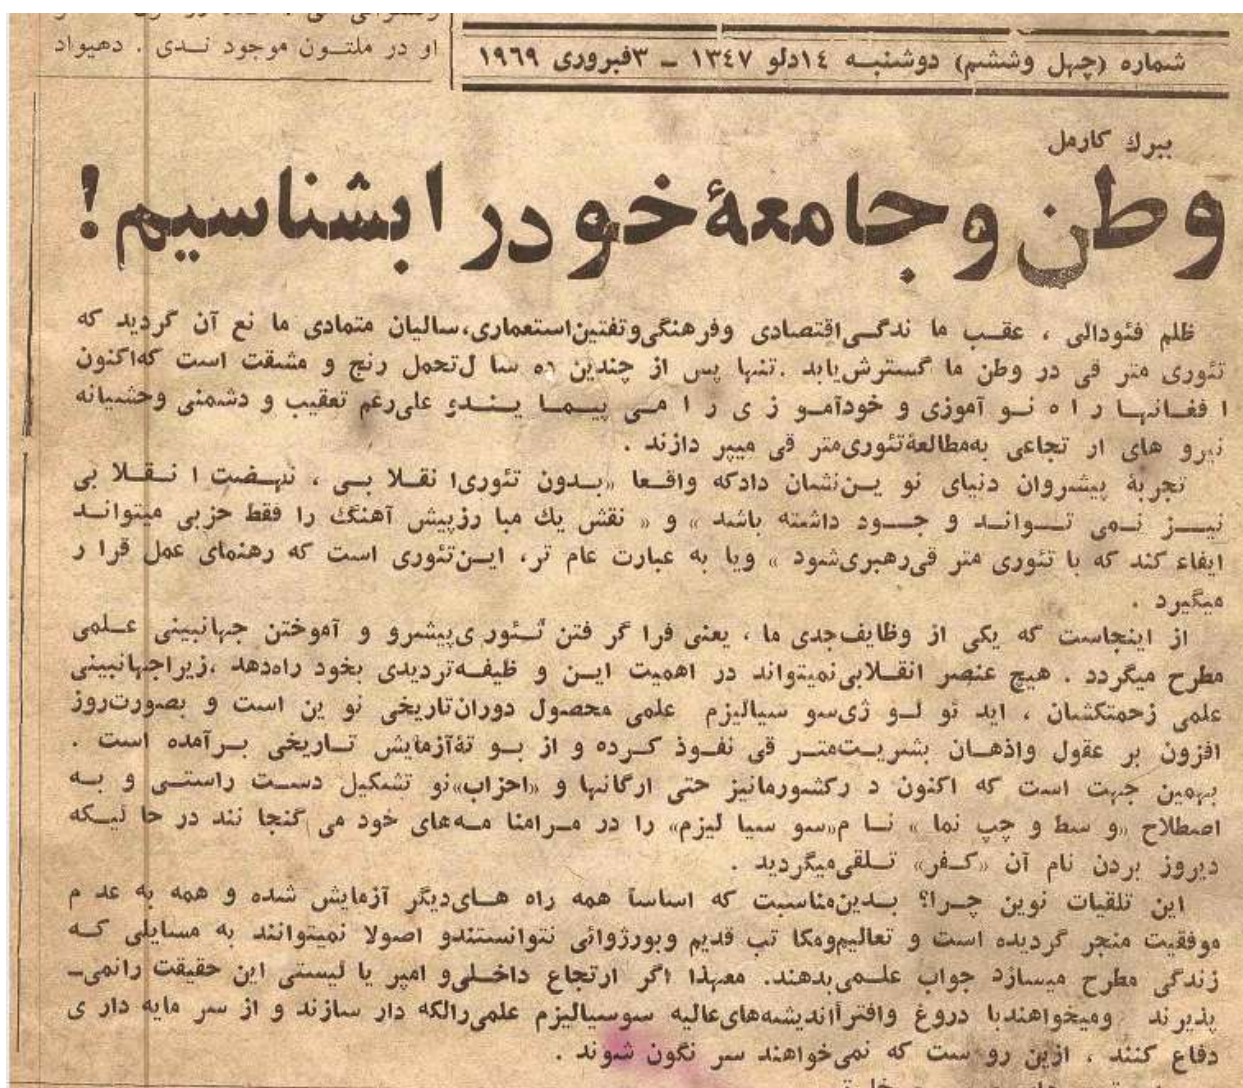 او در ملتون موجود ندی . دهیواد
شماره (چهل وششم) دوشنبه ١٤دلو ١٣٤٧ – ٣فبروری ١٩٦٩
ببرک کارمل
وطن و جامعهٔ خود را بشناسیم!
ظلم فئودالی ، عقب ما ندگی اقتصادی وفرهنگی وتفتین استعماری، سالیان متمادی ما نع آن گردید که
تئوری متر قی در وطن ما گسترش یابد . تنها پس از چندین ده سا ل تحمل رنج و مشقت است که اکنون
ا فغانها ر ا ه نو آموزی و خودآمو ز ی ر ا می پیما یند، علی رغم تعقیب و دشمنی وحشیانه
نیرو های ار تجاعی به مطالعهٔ تئوری متر قی میپر دازند .
تجربهٔ پیشروان دنیای نو ین نشان داد که واقعا «بدون تئوری ا نقلا بی ، نهضت ا نقلا بی
نیز نمی تواند و جود داشته باشد » و « نقش یک مبا رز پیش آهنگ را فقط حزبی میتواند
ایفاء کند که با تئوری متر قی رهبری شود » ویا به عبارت عام تر، این تئوری است که رهنمای عمل قرا ر
میگیرد .
از اینجاست که یکی از وظایف جدی ما ، یعنی فرا گر فتن تئور ی پیشرو و آموختن جهانبینی علمی
مطرح میگردد . هیچ عنصر انقلابی نمیتواند در اهمیت این و ظیفه تردیدی بخود راه دهد ، زیرا جهانبینی
علمی زحمتکشان ، اید ئو لو ژی سو سیالیزم علمی محصول دوران تاریخی نو ین است و بصورت روز
افزون بر عقول واذهان بشریت متر قی نفوذ کرده و از بو تهٔ آزمایش تاریخی برآمده است .
بهمین جهت است که اکنون د رکشور ما نیز حتی ارگانها و «احزاب» نو تشکیل دست راستی و به
اصطلاح «و سط و چپ نما » نا م «سو سیا لیزم» را در مرامنا مه های خود می گنجا نند در حا لیکه
دیروز بردن نام آن «کفر» تلقی میگردید .
این تلقیات نوین چرا؟ بدین مناسبت که اساساً همه راه های دیگر آزمایش شده و همه به عد م
موفقیت منجر گردیده است و تعالیم ومکا تب قدیم وبورژوائی نتوانستند و اصولا نمیتوانند به مسایلی که
زندگی مطرح میسازد جواب علمی بدهند. معهذا اگر ارتجاع داخلی و امپر یا لیستی این حقیقت را نمی–
پذیرند ومیخواهند با دروغ وافترأ اندیشه های عالیه سوسیالیزم علمی را لکه دار سازند و از سر مایه دار ی
دفاع کنند ، ازین رو ست که نمی خواهند سر نگون شوند .